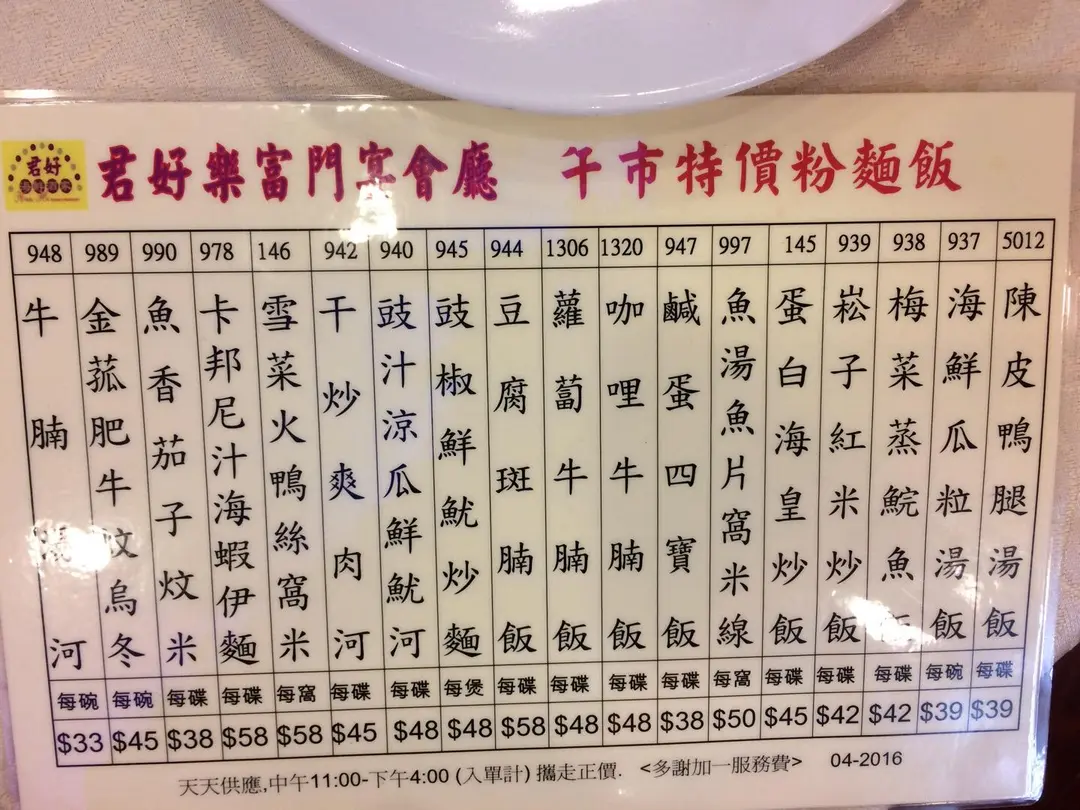 君好
君好樂富門宴會廳 午市特價粉麵飯
948 989 990 978 146 942 940 945 944 1306 1320 947 997 145 939 938 937 5012
牛腩河
金菰肥牛炆烏冬
魚香茄子炆米
卡邦尼汁海蝦伊麵
雪菜火鴨絲窩米
干炒爽肉河
豉汁涼瓜鮮魷河
豉椒鮮魷炒麵
豆腐斑腩飯
蘿蔔牛腩飯
咖哩牛腩飯
鹹蛋四寶飯
魚湯魚片窩米線
蛋白海皇炒飯
崧子紅米炒飯
梅菜蒸鯇魚飯
海鮮瓜粒湯飯
陳皮鴨腿湯飯
每碗 每碗 每碟 每碟 每窩 每碟 每碟 每煲 每碟 每碟 每碟 每碟 每窩 每碟 每碟 每碟 每碗 每碟
$33 $45 $38 $58 $58 $45 $48 $48 $58 $48 $48 $38 $50 $45 $42 $42 $39 $39
天天供應,中午11:00-下午4:00 (入單計) 攜走正價. <多謝加一服務費> 04-2016